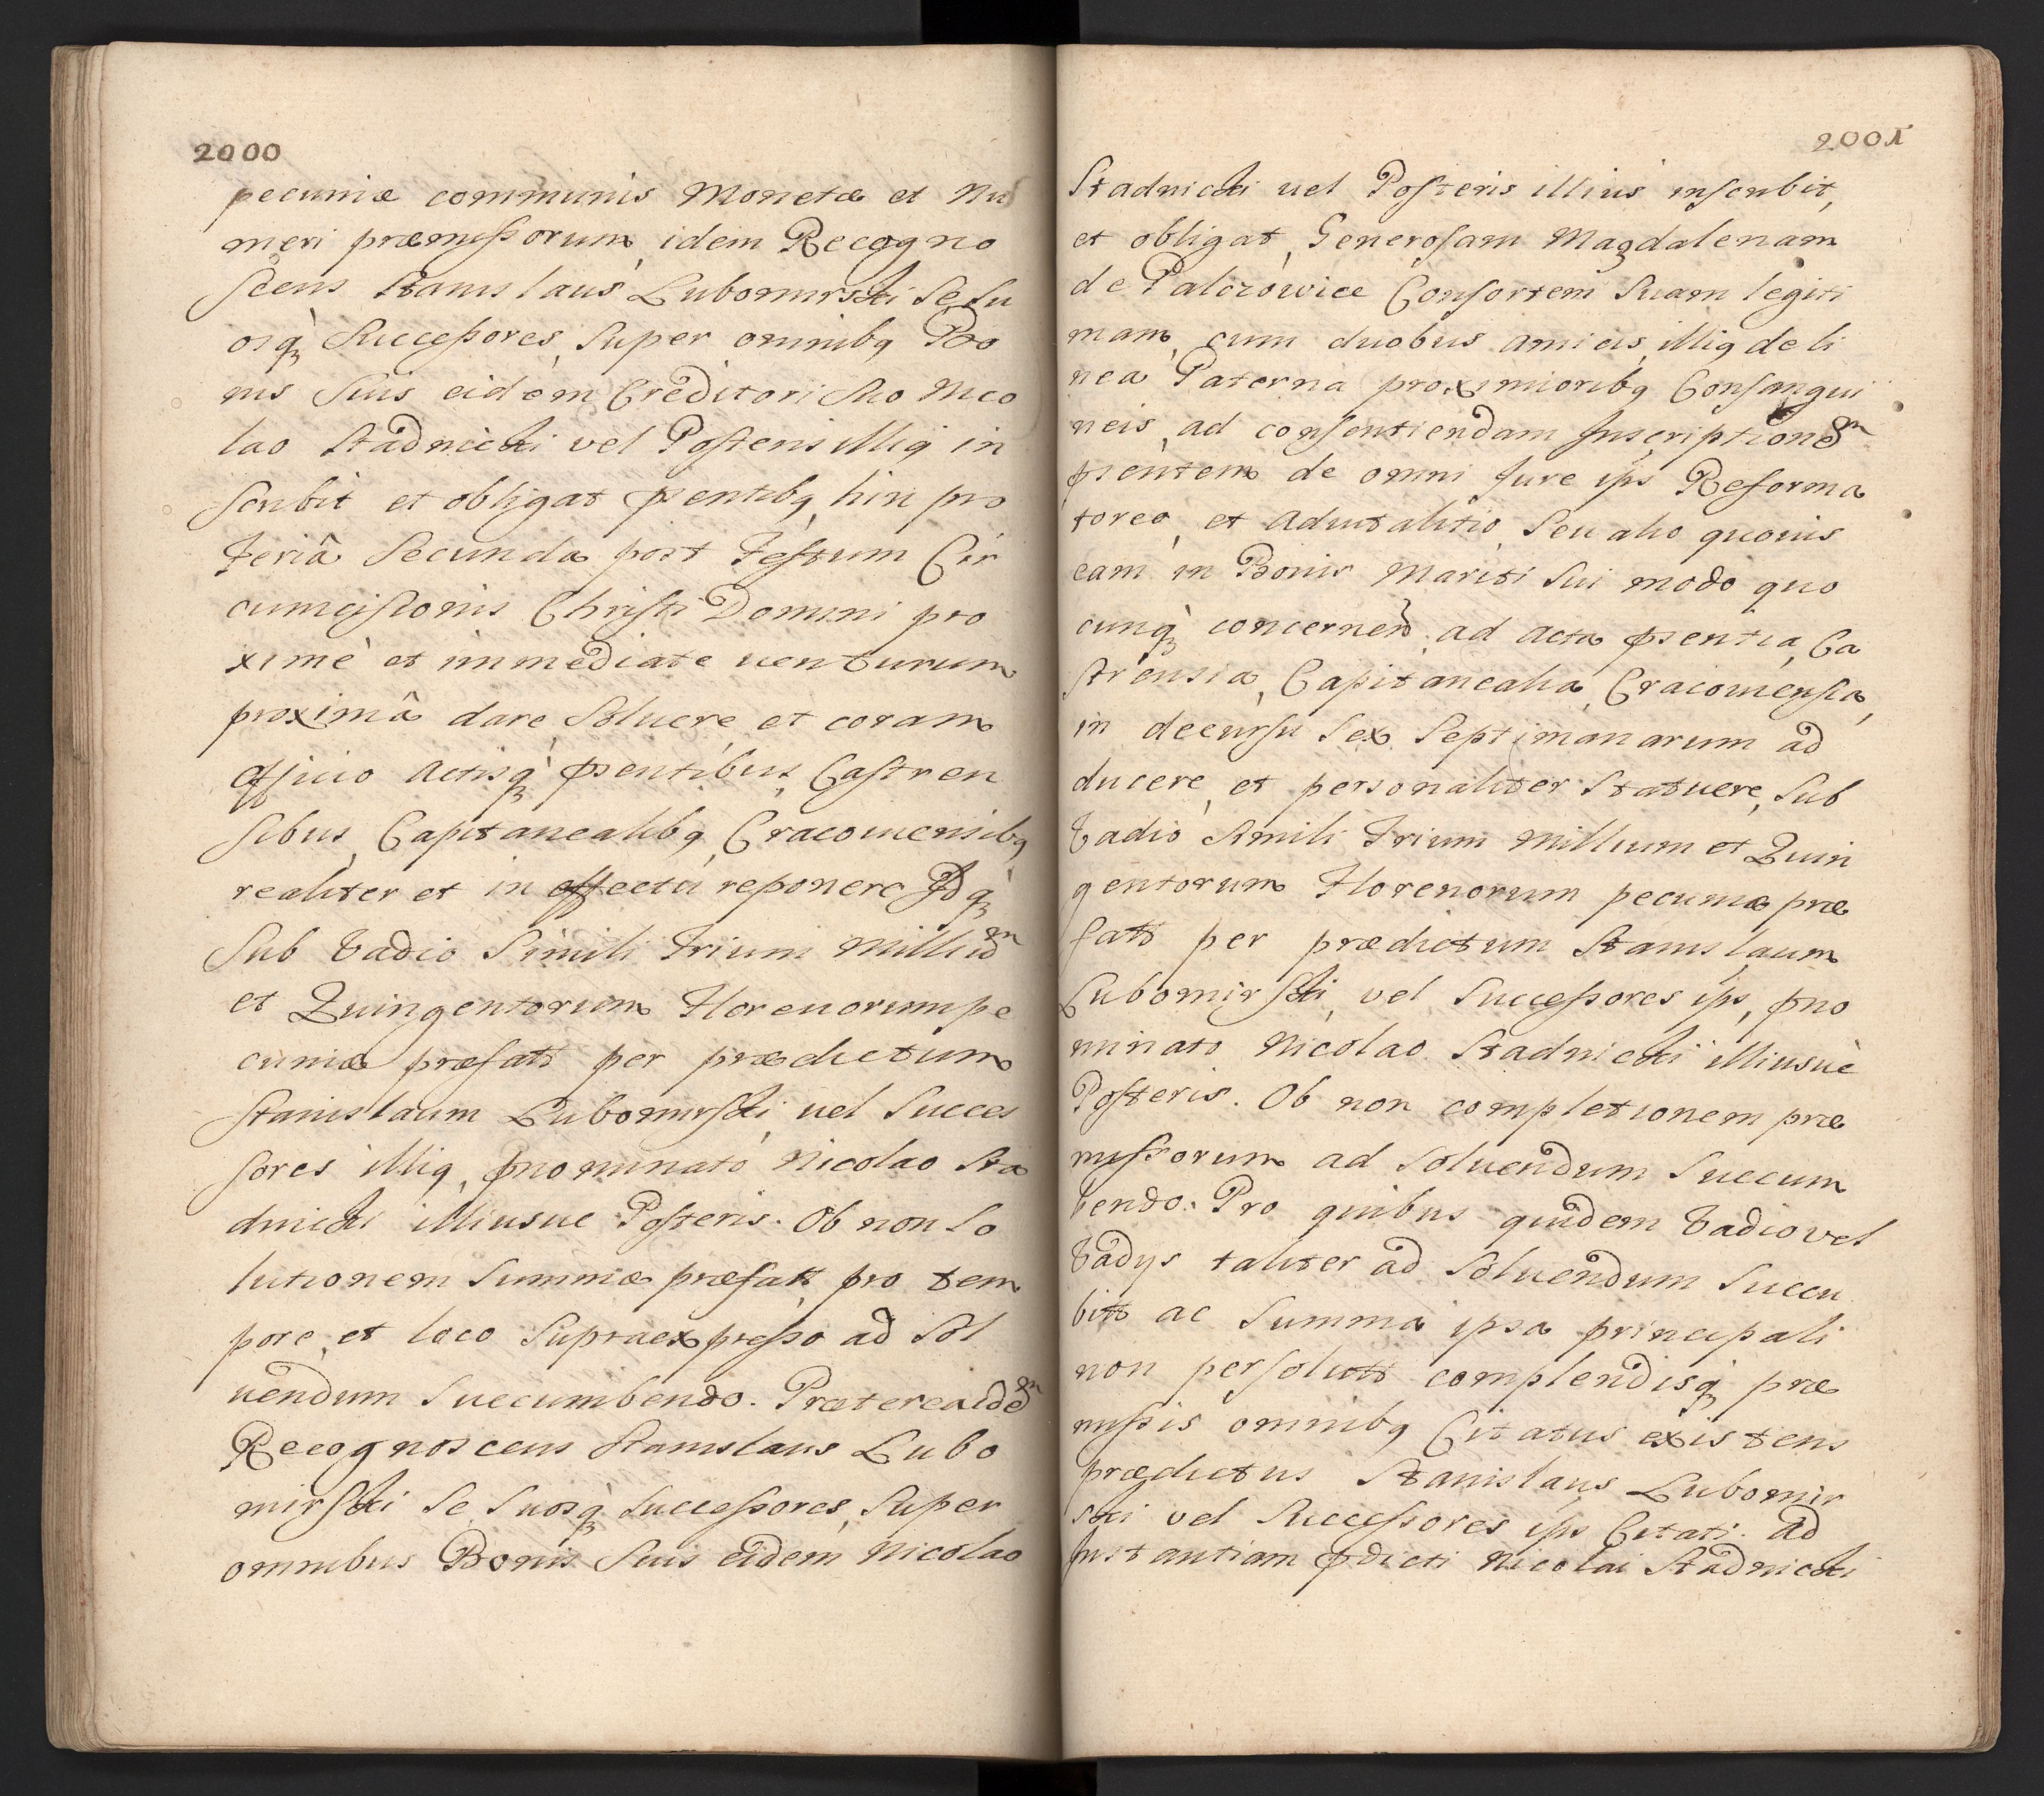 2000
pecuniæ communis Monetæ et Nu
meri præmissorum, idem Recogno
scens Stanislaus Lubomirski Se, Su
osq́ꝫ Successores, Super omnibꝗ Bo
nis Suis eidem Creditori Suo Nico
lao Stadnicki vel Posteris illiꝗ in
scribit et obligat pn̄tibꝗ, hin pro
Feriâ Secunda post Festum Cir
cumcisionis Christi Domini pro
ximè et immediate venturum
proximâ dare, Soluere, et coram
Officio Actisq́ꝫ pn̄tibus, Castren
sibus, Capitanealibꝗ, Cracouiensibꝗ
realiter et in effectu reponere Idq́ꝫ
Sub Vadio Simili Trium Milliu͞m
et Quingentorum Florenorum pe
cuniæ præfatæ per prædictum
Stanislaum Lubomirski, vel Succes
sores illiꝗ, pnominato Nicolao Sta
dnicki illiusue Posteris. Ob non So
lutionem Summæ præfatæ, pro tem
pore, et loco Supraexpresso ad Sol
uendum Succumbendo. Præterea ide͞m
Recognoscens Stanislaus Lubo
mirski Se, Suosq́ꝫ Successores, Super
omnibus Bonis Suis eidem Nicolao
2001
Stadnicki vel Posteris illius inscribit,
et obligat, Generosam Magdalenam
de Palczowice Consortem Suam legiti
mam, cum duobus amicis, illiꝗ de li
nea Paterna proximioribꝗ Consangui
neis, ad consentiendam Inscriptione͞m
pn̄tem de omni Jure ips Reforma
toreo, et Aduitalitio, Seu alio quouis
eam in Bonis Mariti Sui modo quo
cunq́ꝫ concernen̄, ad Acta pn̄tia, Ca
strensia, Capitanealia, Cracouiensia,
in decursu Sex Septimanarum ad
ducere, et personaliter Statuere, Sub
Vadio Simili Trium Millium et Quin
gentorum Florenorum pecuniæ præ
fatæ per prædictum Stanislaum
Lubomirski, vel Successores ips, pno
minato Nicolao Stadnicki illiusuè
Posteris. Ob non completionem præ
missorum ad Soluendum Succum
bendo. Pro quibus quidem Vadio vel
Vadys taliter ad Soluendum Succu
bitis ac Summa ipsa principali
non persoluta complendisq́ꝫ præ
missis omnibꝗ Citatus existens
prædictus Stanislaus Lubomir
ski vel Successores ips Citati. Ad
Instantiam pdicti Nicolai Stadnicki